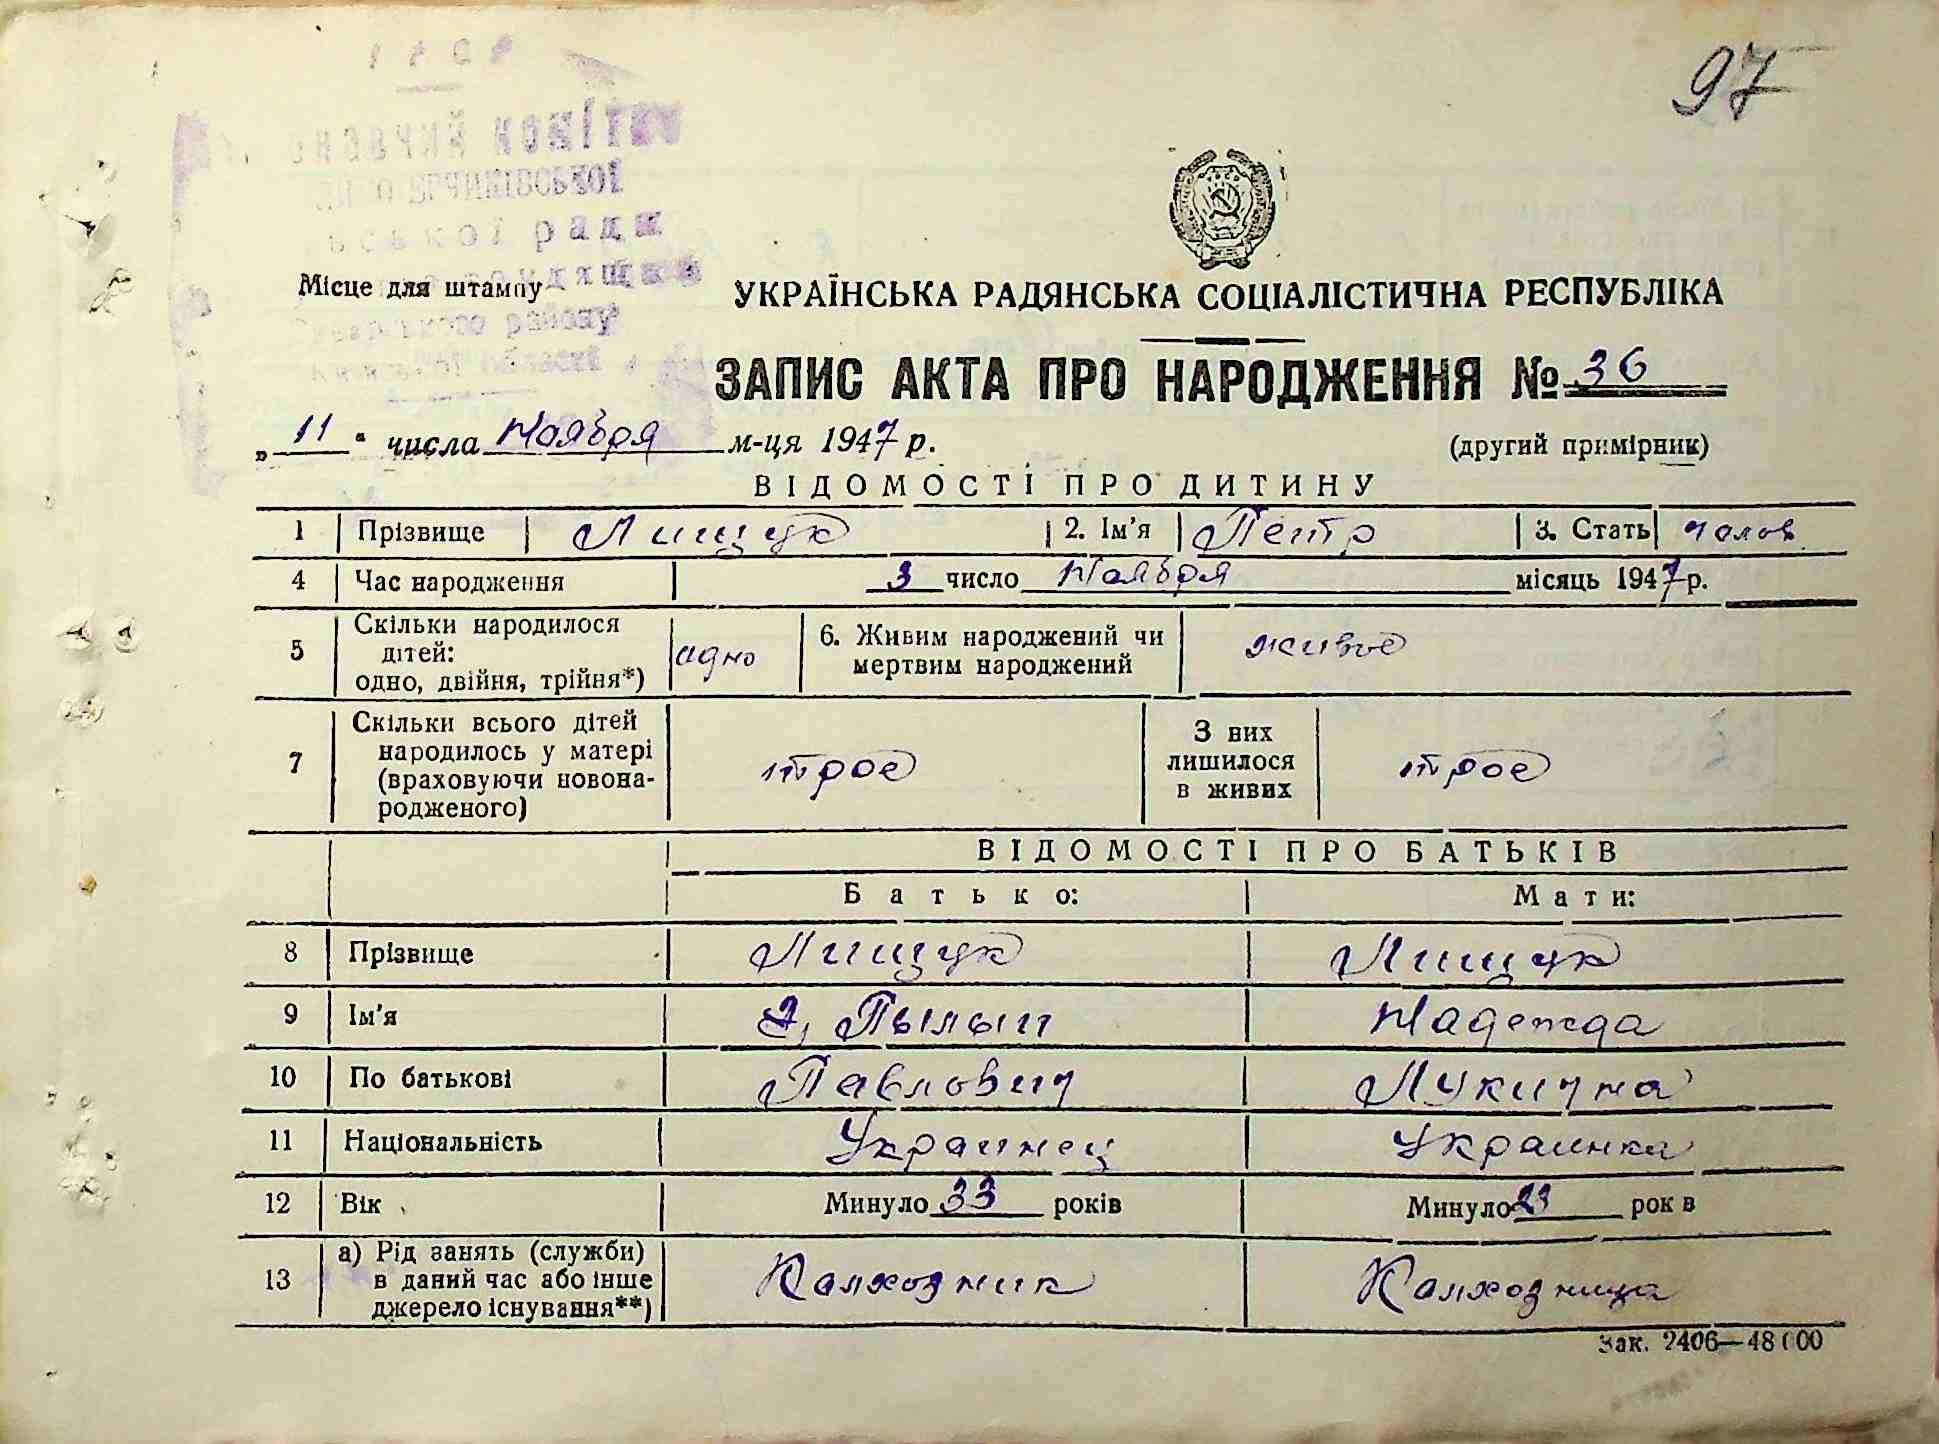 97
комітет
ради
району
області
Місце для штампу
УКРАЇНСЬКА РАДЯНСЬКА СОЦІАЛІСТИЧНА РЕСПУБЛІКА
ЗАПИС АКТА ПРО НАРОДЖЕННЯ № 36
„11“ числа Ноября м-ця 1947 р. (другий примірник)
ВІДОМОСТІ ПРО ДИТИНУ
1 Прізвище Лищук 2. Ім'я Петр 3. Стать чолов
4 Час народження 3 число Ноября місяць 1947 р.
5 Скільки народилося дітей: одно, двійня, трійня*) одно 6. Живим народжений чи мертвим народжений живое
7 Скільки всього дітей народилось у матері (враховуючи новонародженого) трое З них лишилося в живих трое
ВІДОМОСТІ ПРО БАТЬКІВ
Батько: Мати:
8 Прізвище Лищук Лищук
9 Ім'я Пылып Надежда
10 По батькові Павлович Лукична
11 Національність Украинец Украинка
12 Вік Минуло 33 років Минуло 23 рок в
13 а) Рід занять (служби) в даний час або інше джерело існування**) Калхозник Калхозница
Зак. 2406—48000